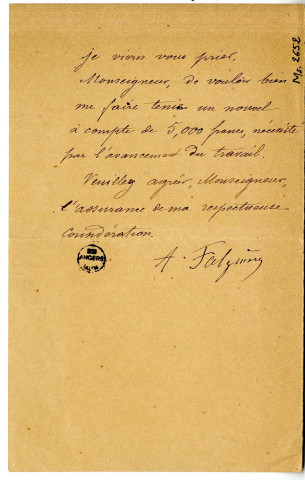 je viens vous prier,
Monseigneur, de vouloir bien
me faire tenir un nouvel
à compte de 5,000 francs, nécessité
par l'avancement du travail.
Veuillez agréer, Monseigneur,
l'assurance de ma respectueuse
considération.
A. Falguière
ANGERS
Ms. 2652